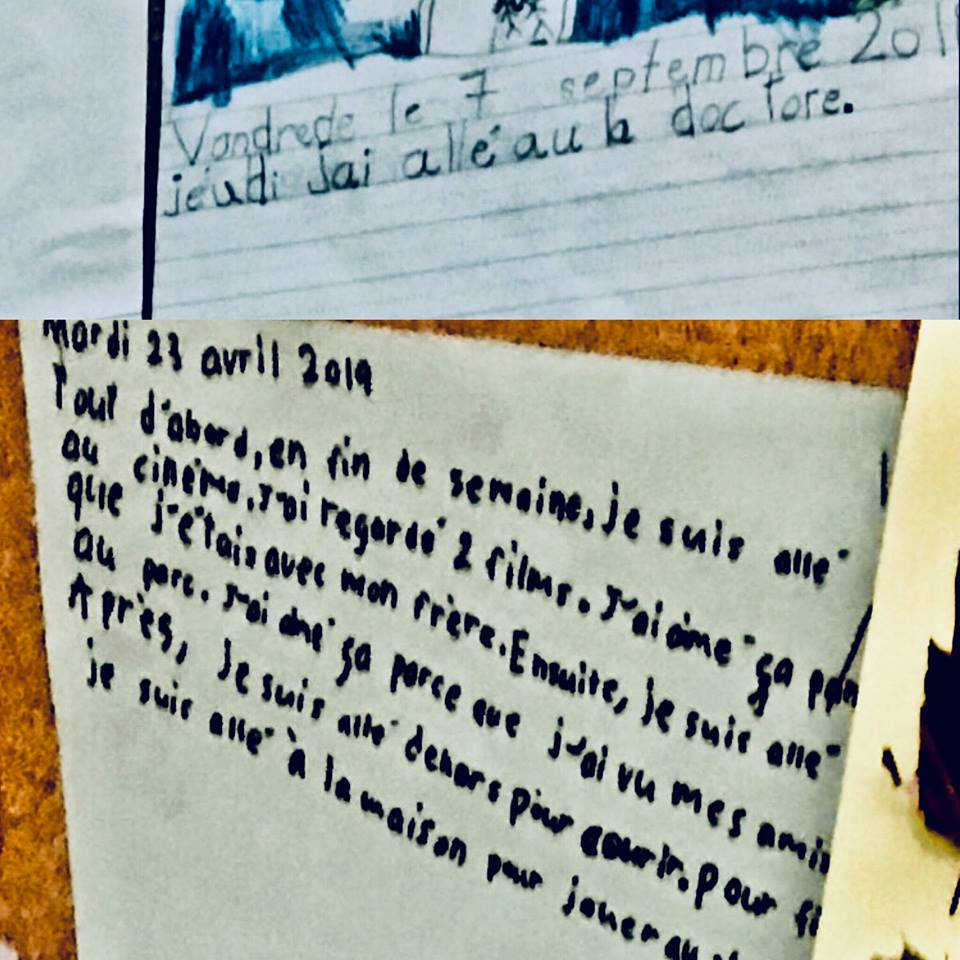 Vandrede le 7 septembre 201
jeudi Jai allé au la doctore.
Mardi 23 avril 2019
Tout d'abord, en fin de semaine, je suis allé
au cinéma. J'ai regardé 2 films. J'ai aimé ça
que j'étais avec mon frère. Ensuite, je suis allé
au parc. J'ai aimé ça parce que j'ai vu mes amis
Après, Je suis allé dehors pour courir. Pour
je suis allé à la maison pour jouer au